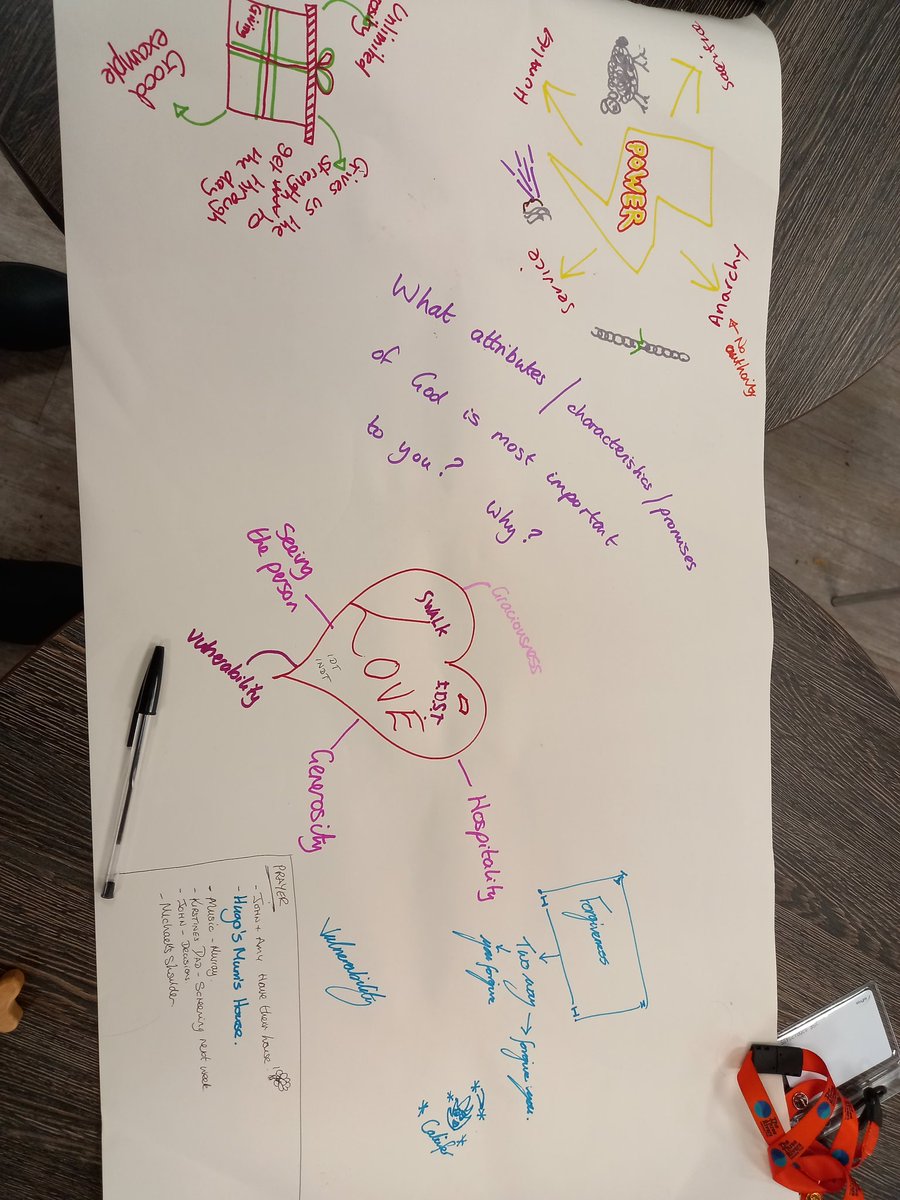 What attributes / characteristics / promises
of God is most important
to you? Why?
POWER
Sacrifice
Humans
Service
Anarchy
No
authority
Giving
Unlimited
Good
example
Gives us the
strength to
get through
the day
LOVE
SWALK
IDT
INDT
Graciousness
Hospitality
Generosity
Vulnerability
Seeing
the person
Forgiveness
Two way → forgive you.
you forgive
Vulnerability
PRAYER
- JOHN + AMY HAVE THEIR HOUSE!
- Hugo's Mum's House.
- MUSIC - Murray
- KIRSTINES DAD - SCREENING next week
- JOHN - DECISION
- MICHAELS SHOULDER